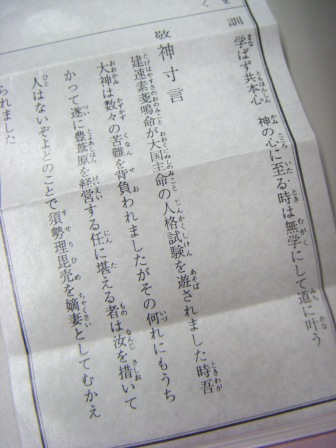 訓
学ばず共本心 神の心に至る時は無学にして道に叶う
敬神寸言
建速素戔嗚命が大国主命の人格試験を遊されました時吾
大神は数々の苦難を背負われましたがその何れにもうち
かって遂に豊葦原を経営する任に堪える者は汝を措いて
人はないぞよとのことで須勢理毘売を嫡妻としてむかえ
られました